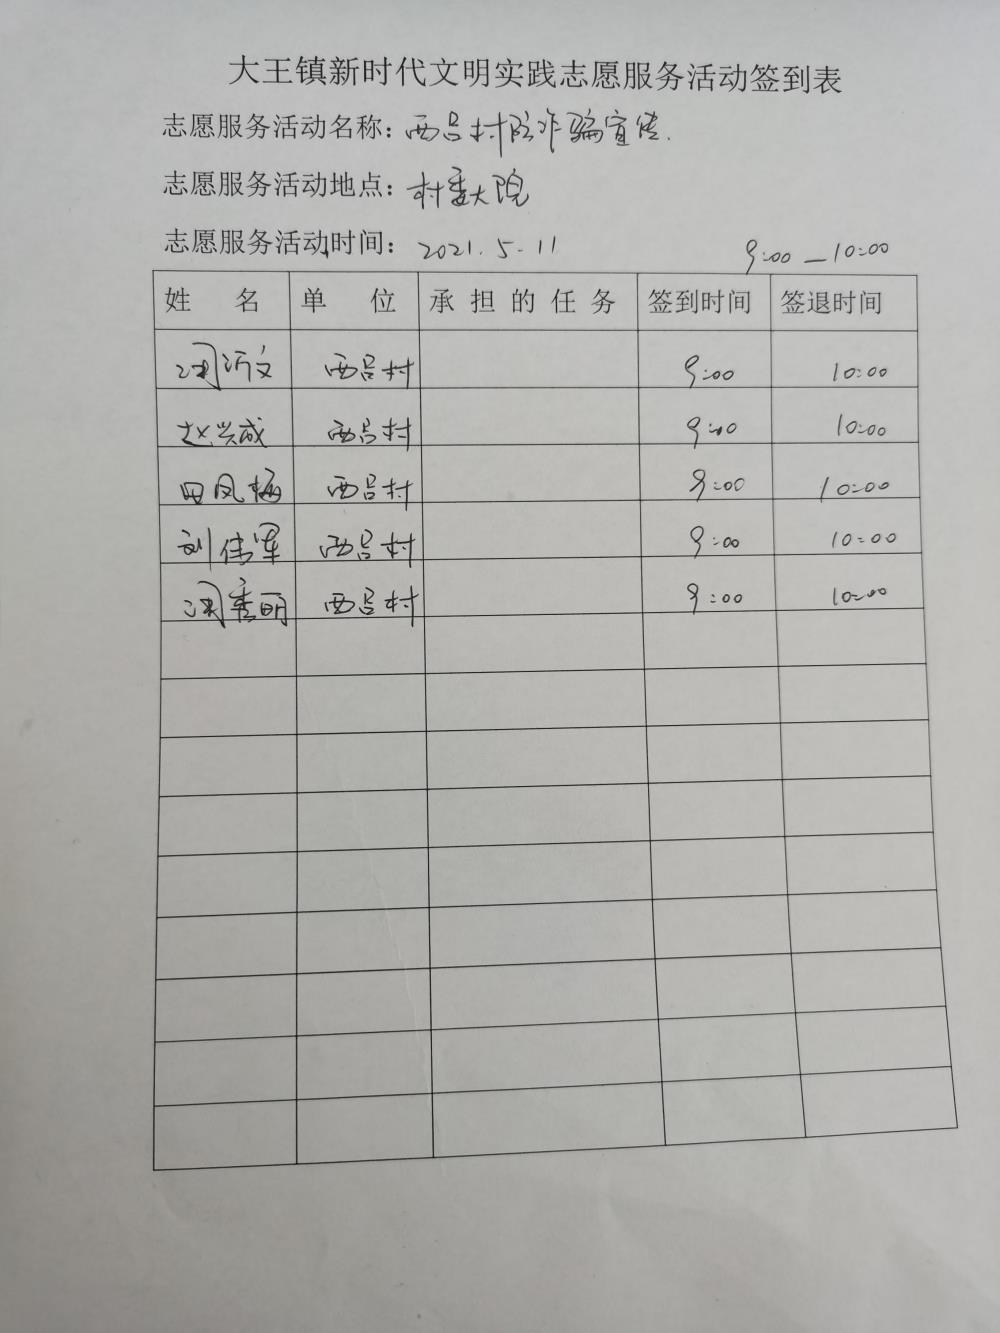 大王镇新时代文明实践志愿服务活动签到表
志愿服务活动名称：西吕村防诈骗宣传.
志愿服务活动地点：村委大院
志愿服务活动时间：2021.5.11 9:00—10:00
姓 名 单 位 承担的任务 签到时间 签退时间
西吕村 9:00 10:00
赵兴成 西吕村 9:00 10:00
田凤梅 西吕村 9:00 10:00
刘伟军 西吕村 9:00 10:00
秀明 西吕村 9:00 10:00